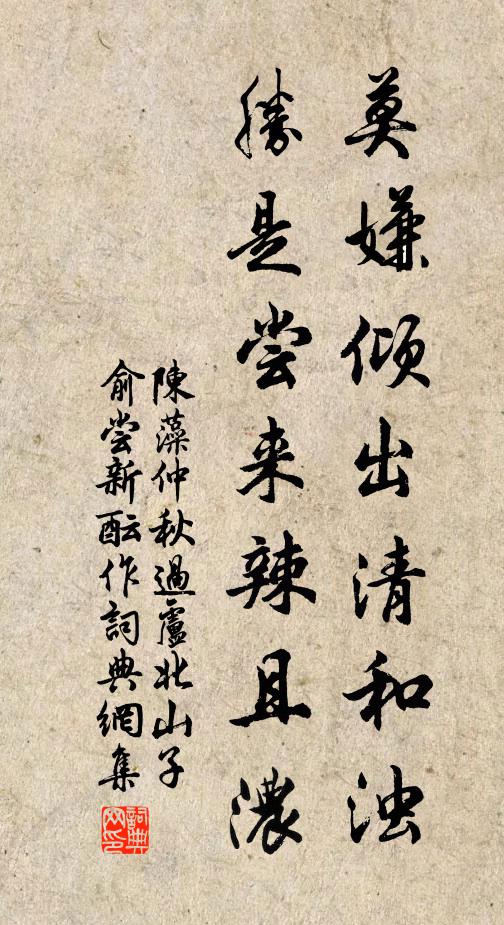 莫嫌倾出清和浊
勝是尝来辣且濃
陳藻仲秋過盧北山子
俞尝新酝作詞典網集
詞典網印